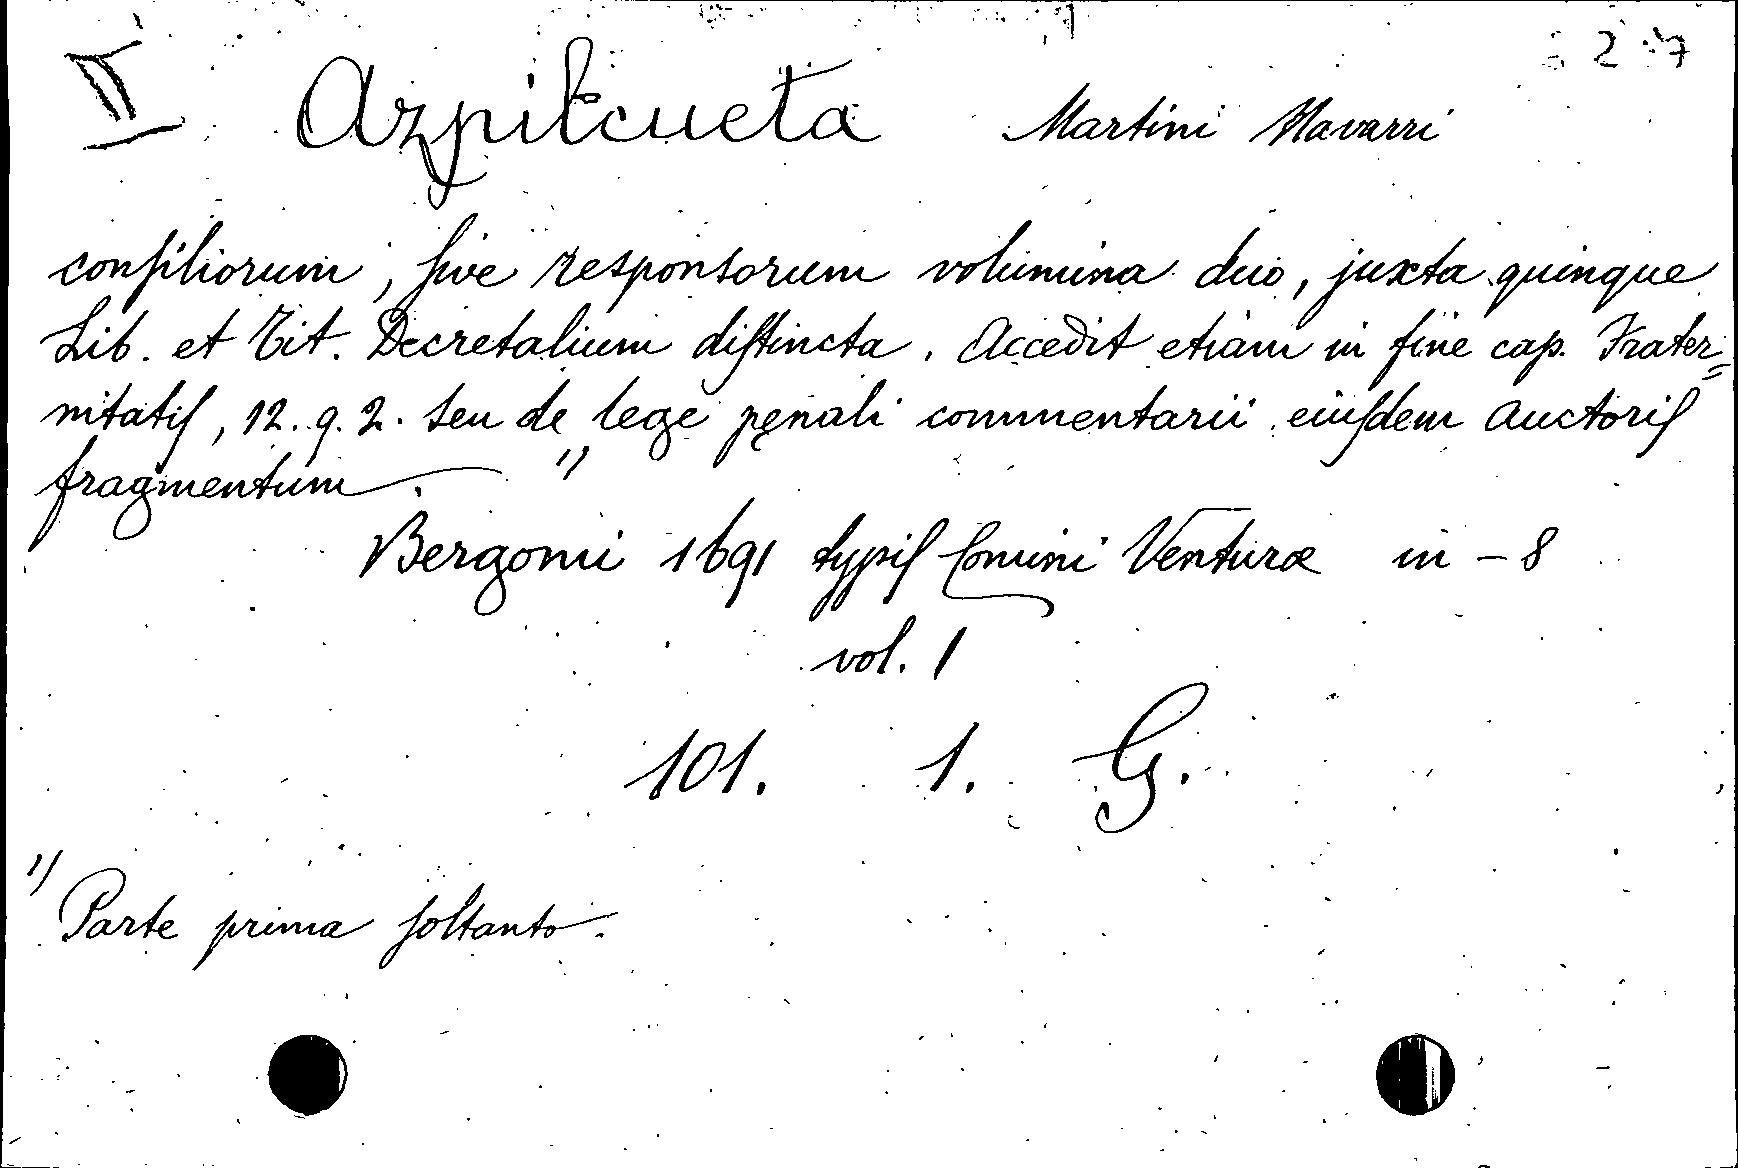 II Azpilcueta Martini Navarri 2 7
conſiliorum, ſive responsorum volumina duo, juxta quinque
Lib. et Tit. Decretalium diſtincta. Accedit etiam in fine cap. Frater=
nitatiſ, 12. q. 2. seu de lege pęnali commentarii eiuſdem auctoriſ
fragmentum. 1)
Bergomi 1691 typiſ Comini Venturæ in - 8
vol. 1
101. 1. G.
1) Parte prima ſoltanto.